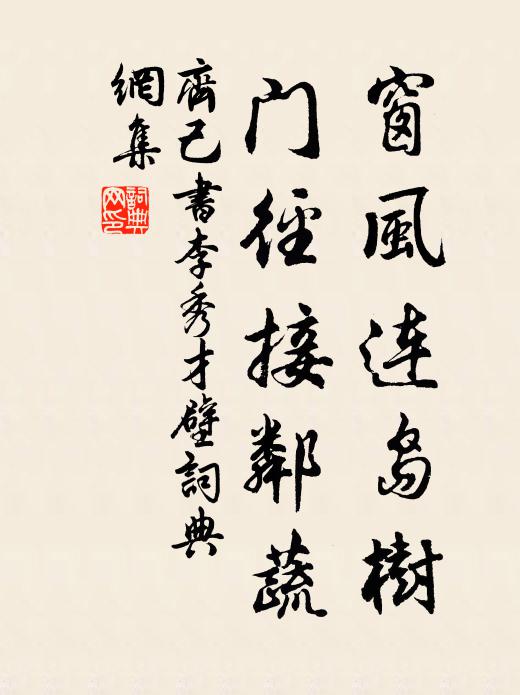 窗風連島樹
門徑接鄰蔬
齊己書李秀才壁詞典
網集
詞典
网印